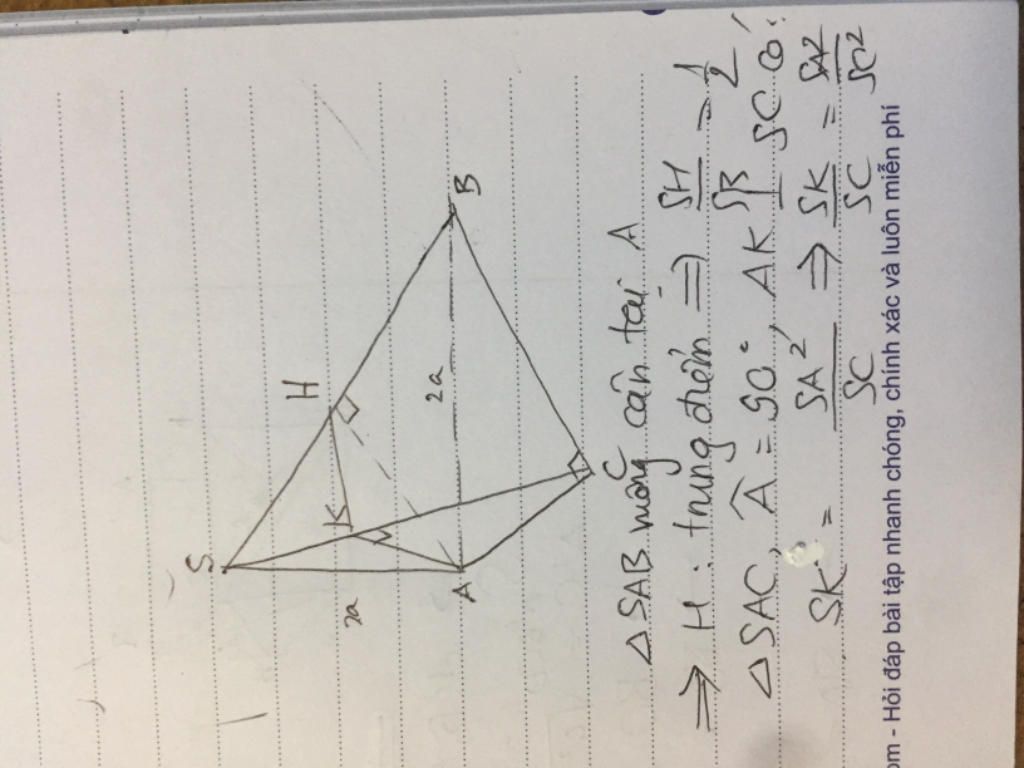 S
H
B
K
2a
2a
A
C
Δ SAB vuông cân tại A
⇒ H : trung điểm ⇒ SH/SB = 1/2
Δ SAC, Â = 90°, AK ⊥ SC có:
SK = SA²/SC ⇒ SK/SC = SA²/SC²
om - Hỏi đáp bài tập nhanh chóng, chính xác và luôn miễn phí